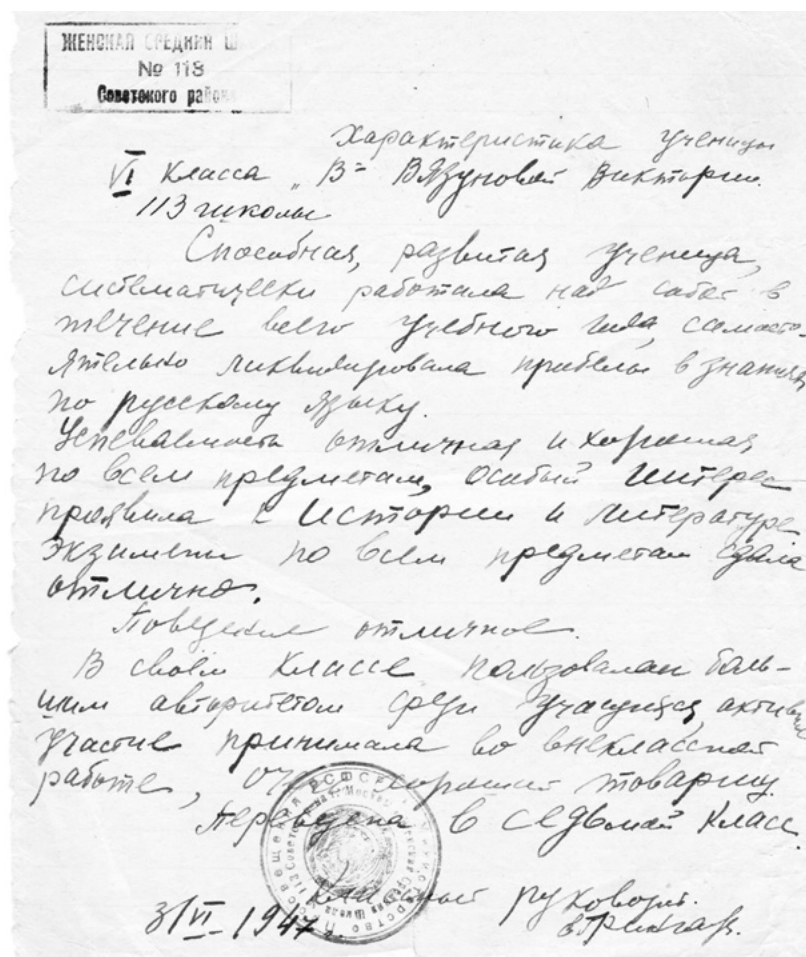 ЖЕНСКАЯ СРЕДНЯЯ Ш
№ 113
Советского района
Характеристика ученицы
VI класса „В" Вязуновой Виктории
113 школы
Способная, развитая ученица,
систематически работала над собой в
течение всего учебного года, самосто-
ятельно ликвидировала пробелы в знаниях
по русскому языку.
Успеваемость отличная и хорошая
по всем предметам, особый интерес
проявила к истории и литературе
экзамены по всем предметам сдала
отлично.
Поведение отличное.
В своём классе пользовалась боль-
шим авторитетом среди учащихся, активное
участие принимала во внеклассной
работе, хороший товарищ.
Переведена в седьмой класс.
Классный руководит.
3/VI-1947г.